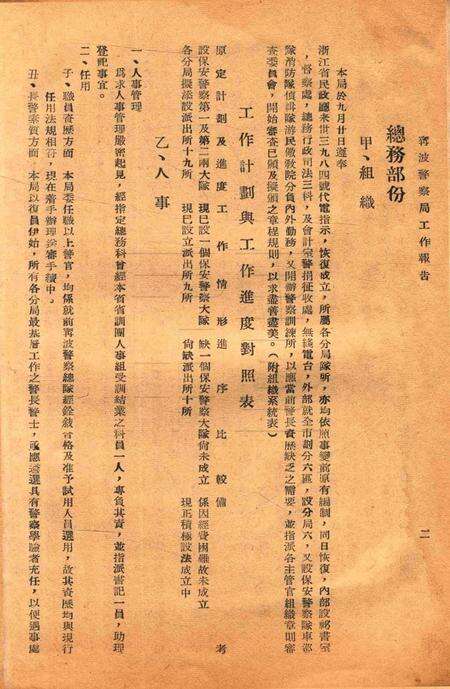 寗波警察局工作報告
二
總務部份
甲、組織
本局於九月廿日遵奉
浙江省民政廳未世三九八四號代電指示，恢復成立，所屬各分局隊所，亦均依照事變前原有編制，同日恢復，內部設祕書室
，督察處，總務行政司法三科，及會計室警捐征收處，無綫電台，外部就全市劃分六區，設分局六，又設保安警察隊車巡
隊消防隊偵緝隊游民儌教院分負內外勤務，又開辦警察訓練所，以應當前警長資歷缺乏之需要，並指派各主管官組織章則審
查委員會，開始審查已頒及擬頒之章程規則，以求盡善盡美。（附組織系統表）
工作計劃與工作進度對照表
原定計劃及進度 工作情形 進序比較 備考
設保安警察第一及第二兩大隊 現已設一個保安警察大隊 缺一個保安警察大隊尙未成立 係因經費困難故未成立
各分局擬添設派出所十九所 現已設立派出所九所 尙缺派出所十所 現正積極設法成立中
乙、人事
一、人事管理
爲求人事管理嚴密起見，經指定總務科曾經本省省訓團人事組受訓結業之科員一人，專負其責，並指派書記一員，助理
登記事宜。
二、任用
子、職員資歷方面 本局委任職以上警官，均係就前寗波警察總隊經銓敍合格及准予試用人員選用，故其資歷均與現行
任用法規相符，現在着手辦理送審手續中。
丑、長警素質方面 本局以復員伊始，所有各分局最基層工作之警長警士，亟應遴選具有警察學驗者充任，以便遇事處